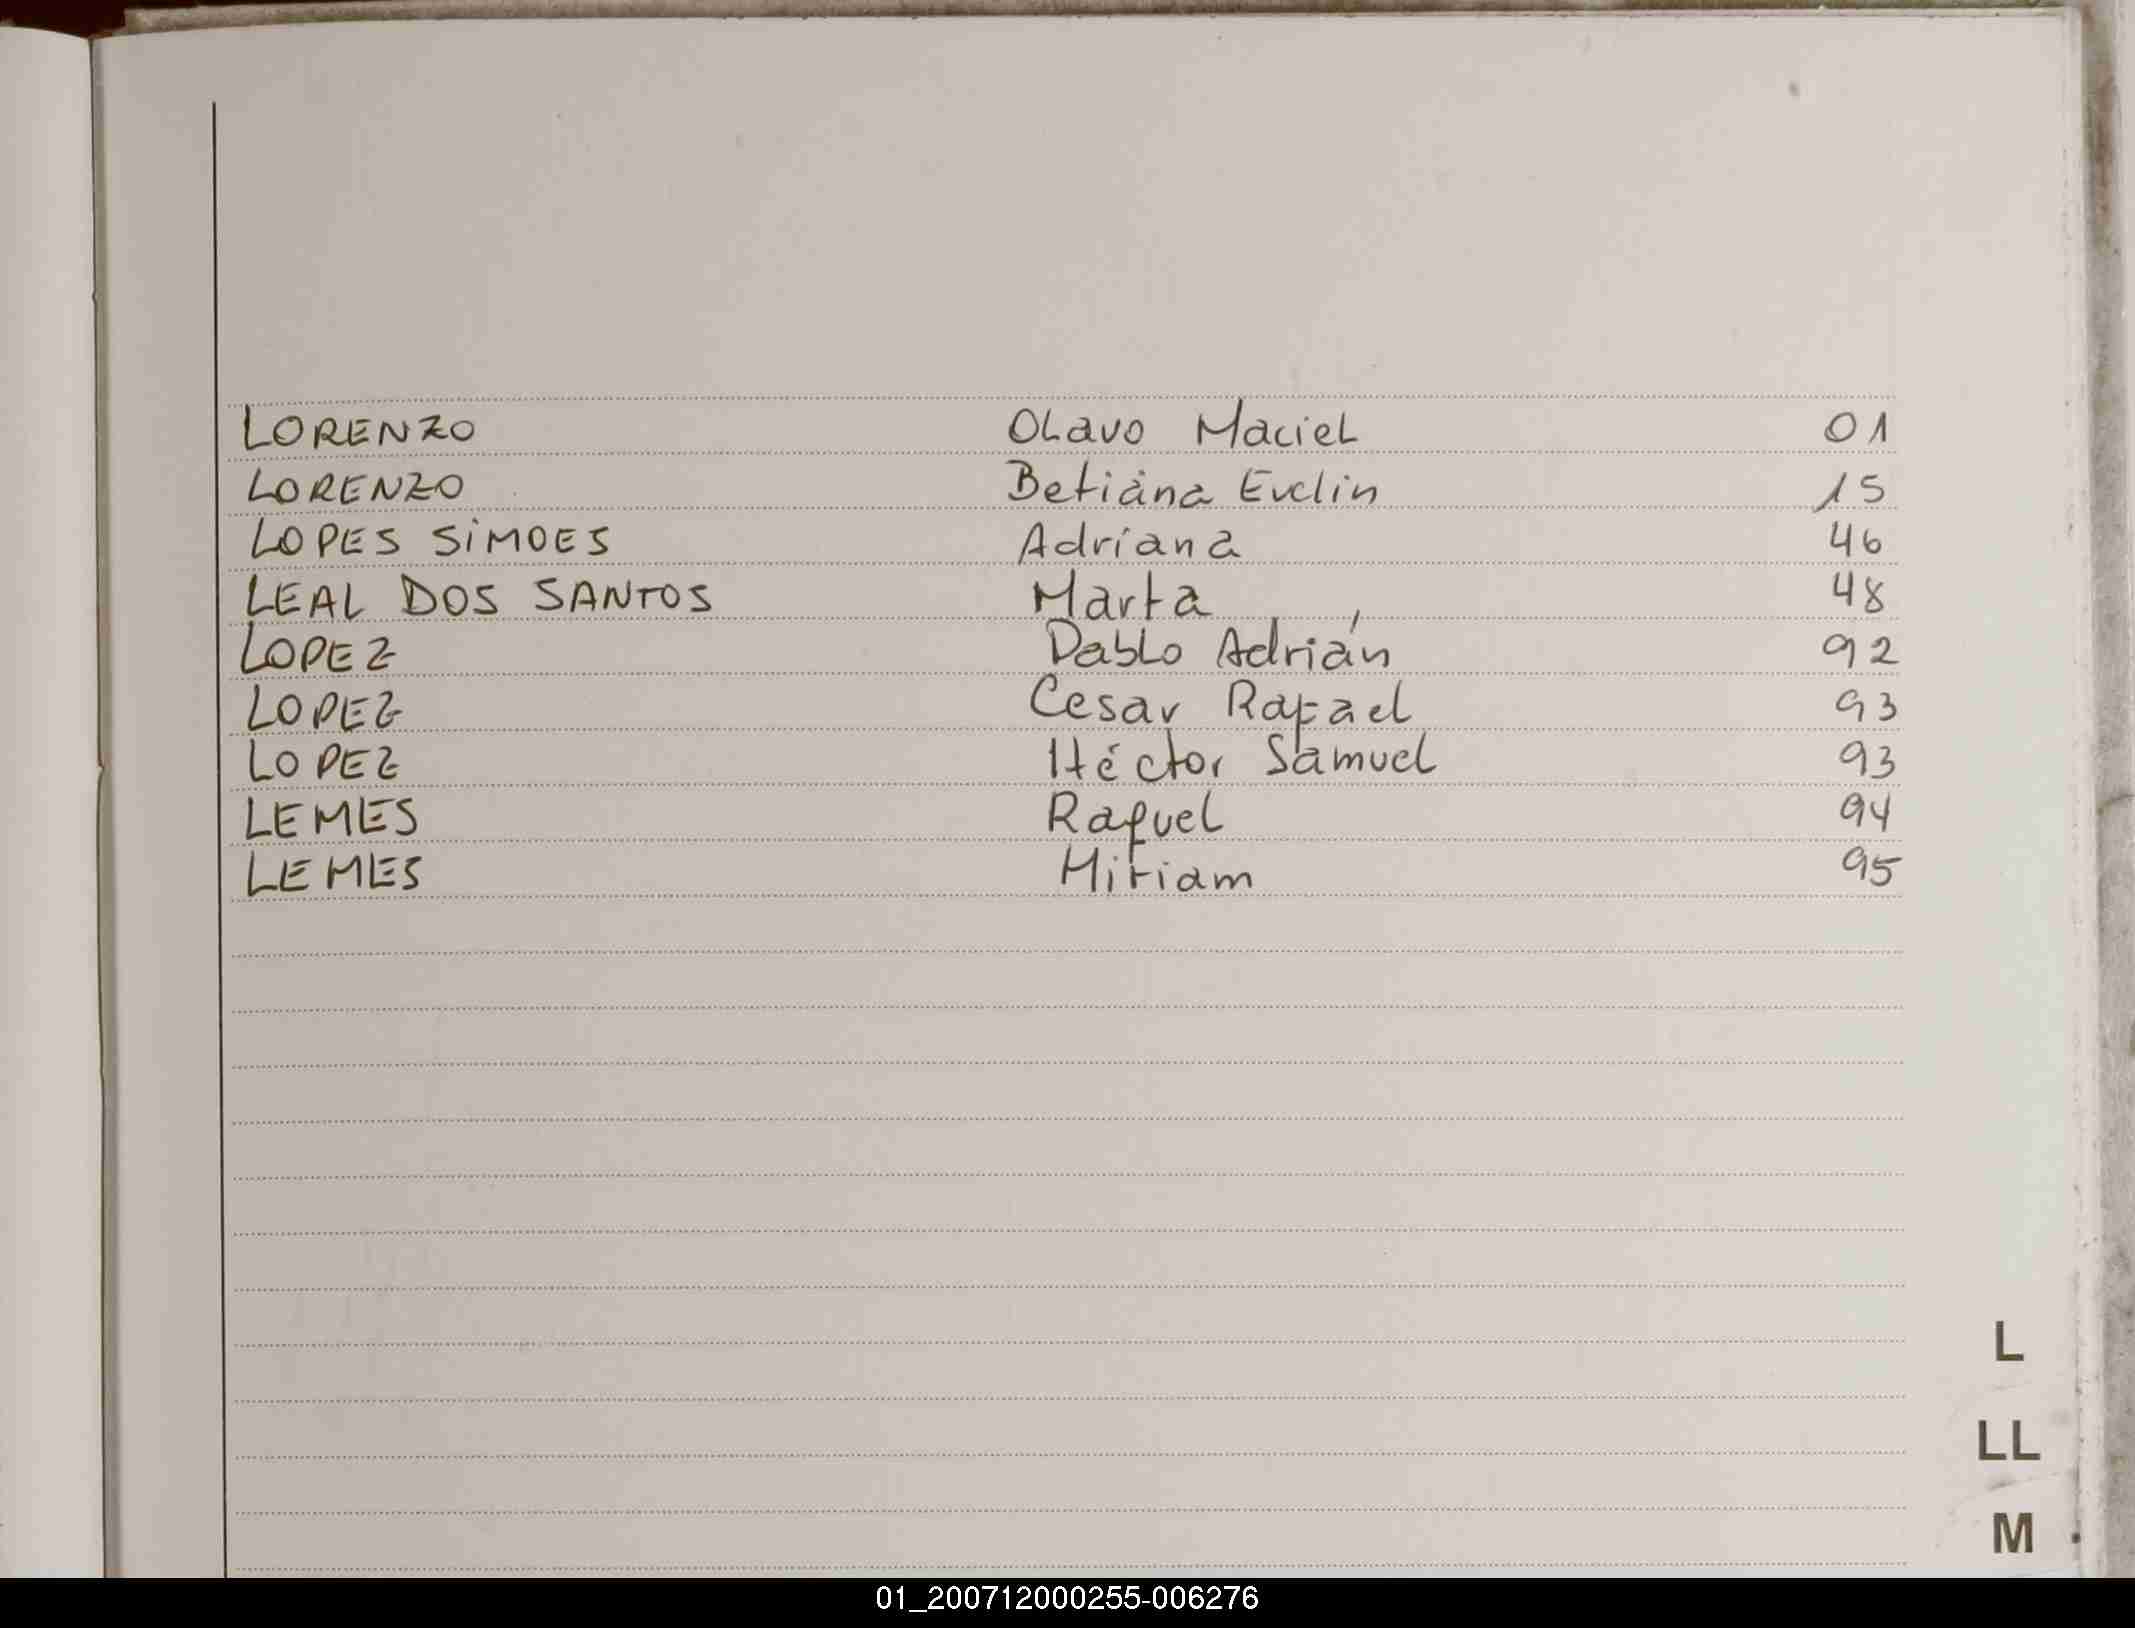 LORENZO Olavo Maciel 01
LORENZO Betiana Evelin 15
LOPES SIMOES Adriana 46
LEAL DOS SANTOS Marta 48
LOPEZ Pablo Adrián 92
LOPEZ Cesar Rafael 93
LOPEZ Héctor Samuel 93
LEMES Raquel 94
LEMES Miriam 95
L
LL
M
01_200712000255-006276